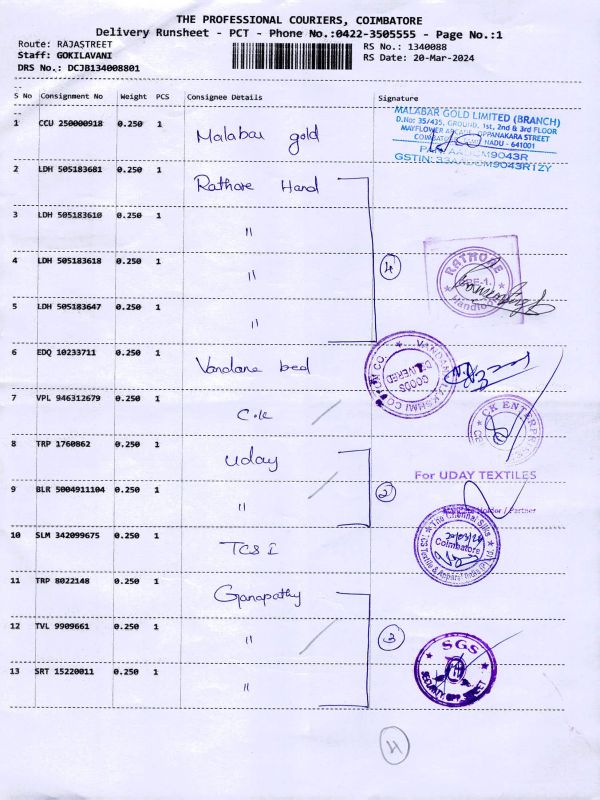 THE PROFESSIONAL COURIERS, COIMBATORE
Delivery Runsheet - PCT - Phone No.:0422-3505555 - Page No.:1
Route: RAJASTREET
Staff: GOKILAVANI
DRS No.: DCJB134008801
RS No.: 1340088
RS Date: 20-Mar-2024
S No Consignment No Weight PCS Consignee Details Signature
1 CCU 250000918 0.250 1 Malabar gold
MALABAR GOLD LIMITED (BRANCH)
D.No: 35/435, GROUND, 1st, 2nd & 3rd FLOOR
MAYFLOWER ARCADE, OPPANAKARA STREET
COIMBATORE NADU - 641001
2 LDH 505183681 0.250 1 Rathore Hand
3 LDH 505183610 0.250 1 "
4 LDH 505183618 0.250 1 "
4
RATHORE
5 LDH 505183647 0.250 1 "
6 EDQ 10233711 0.250 1 Vandana bed
GOODS DELIVERED
7 VPL 946312679 0.250 1 C.K
CK ENTERPRISE
8 TRP 1760862 0.250 1 Uday
For UDAY TEXTILES
9 BLR 5004911104 0.250 1 "
2
/ Partner
10 SLM 342099675 0.250 1 TCS I
The Chennai Silks
20/03/24
Coimbatore
11 TRP 8022148 0.250 1 Ganapathy
12 TVL 9909661 0.250 1 "
3
SGS
SECURITY
13 SRT 15220011 0.250 1 "
4